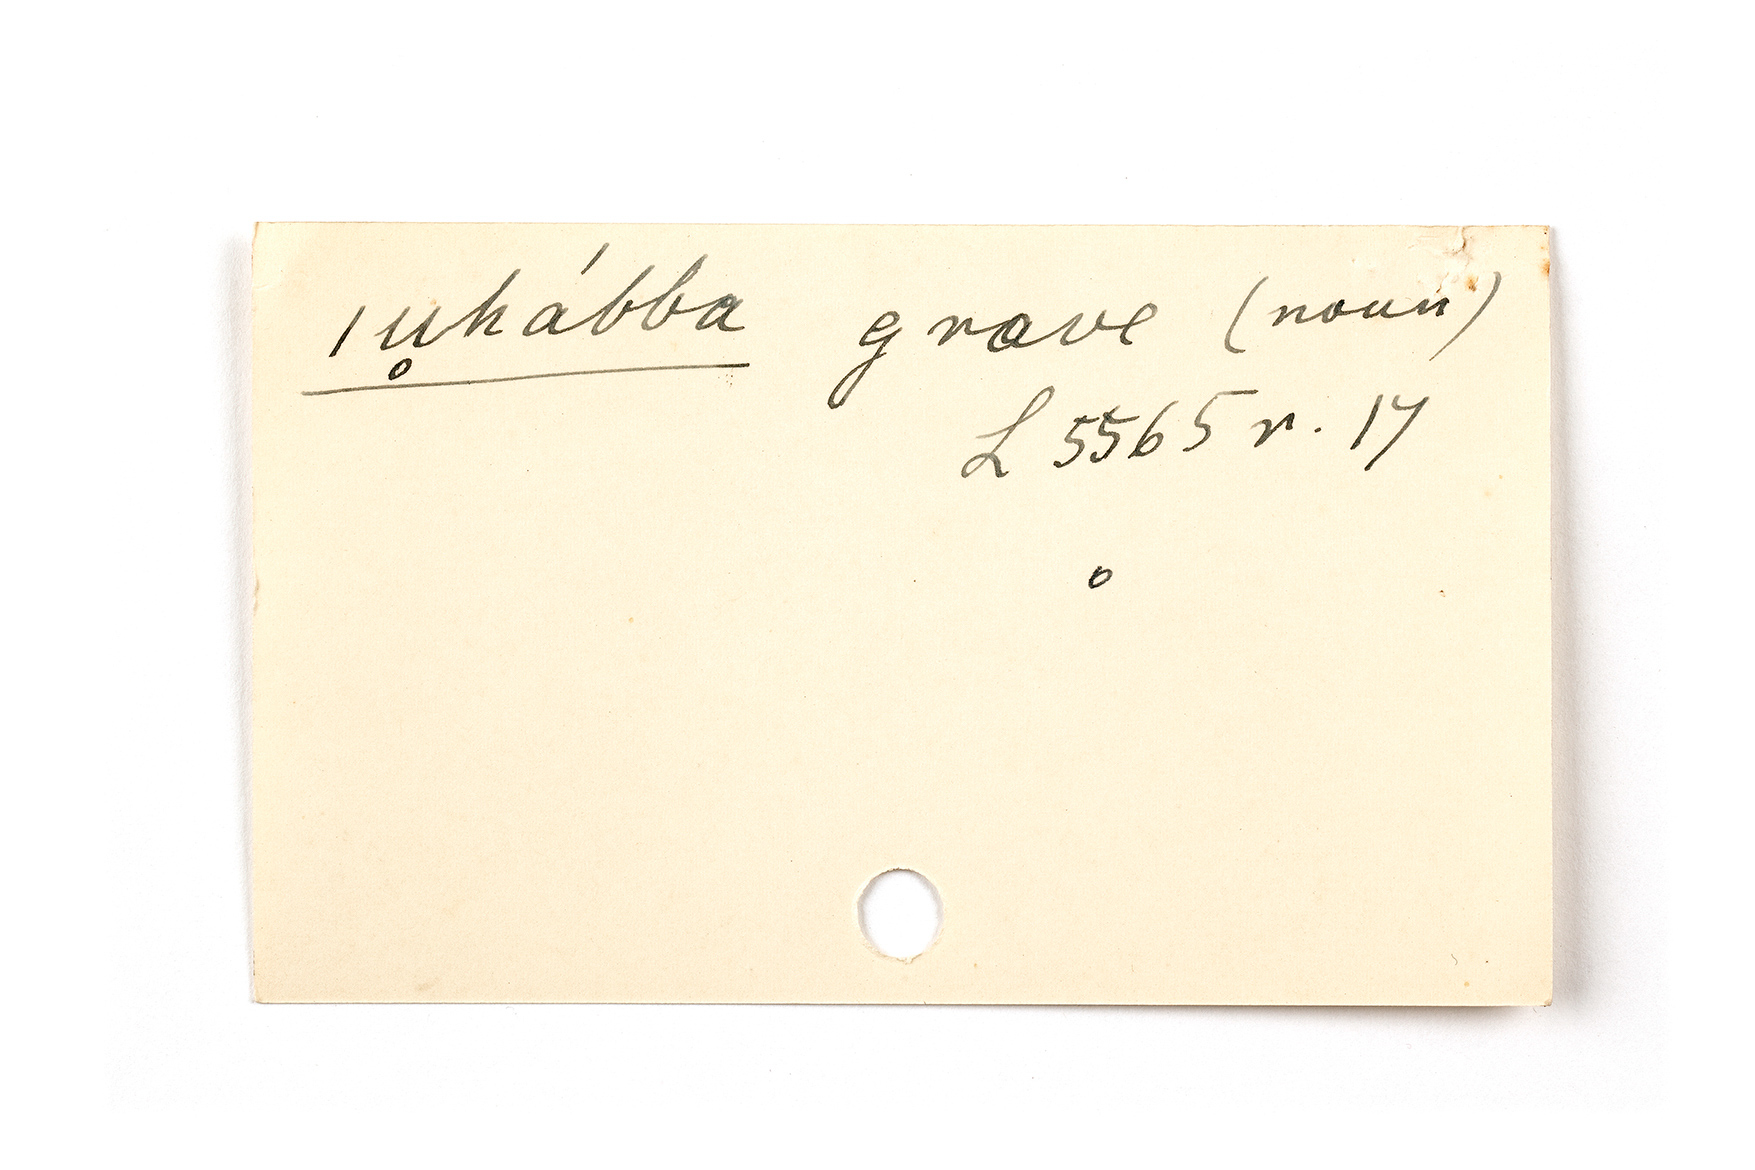 ıu̥hábba grave (noun)
L 5565 r. 17
o